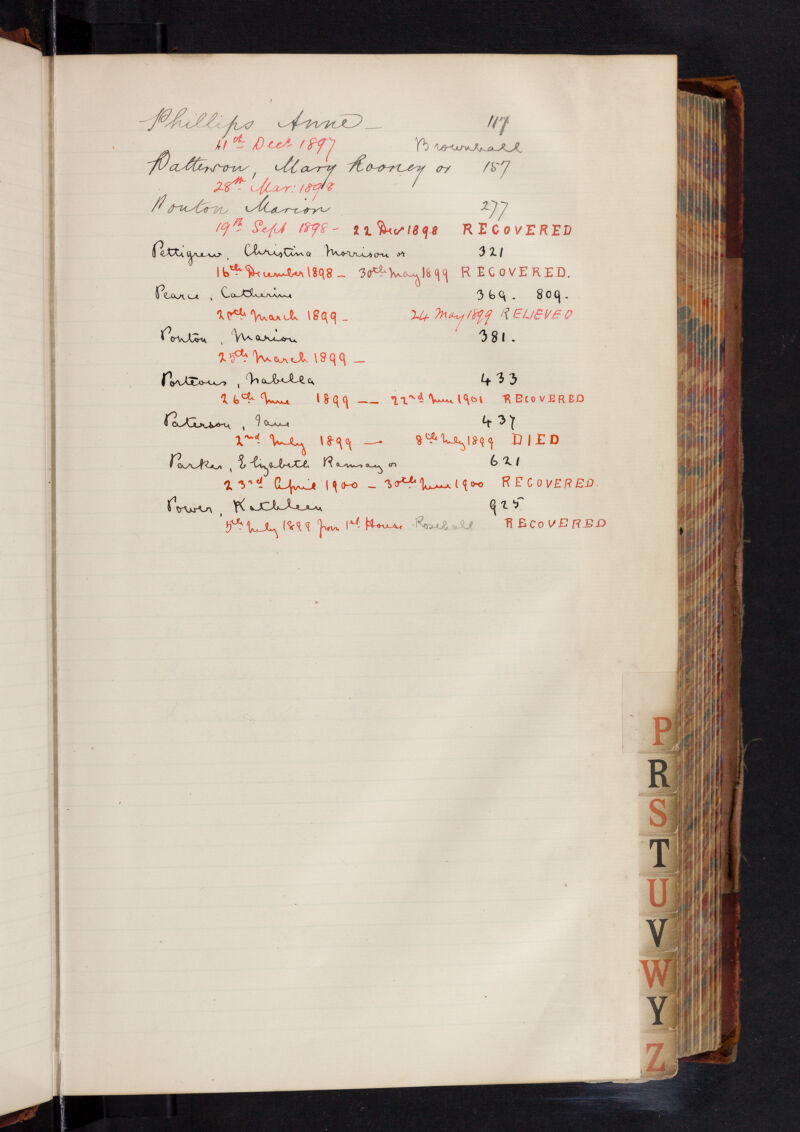 Phillips Anne — 117
11th Decr 1897 Brownhall
Patterson, Mary Rooney or 157
28th Mar: 1898
Ponton Marion 277
19th Sept 1898 - 22 Decr 1898 RECOVERED
Pettigrew, Christina Morrison or 321
16th December 1898 — 30th May 1899 RECOVERED.
Pearce, Catherine 369. 809.
20th March 1899 — 24 May 1899 RELIEVED
Ponton, Marion 381.
25th March 1899 —
Porteous, Isabella 433
26th June 1899 — 22nd June 1901 RECOVERED
Paterson, Jane 437
2nd July 1899 — 8th July 1899 DIED
Parker, Elizabeth Ramsay or 621
23rd April 1900 — 30th June 1900 RECOVERED.
Power, Kathleen 925
5th July 1899 from 1st House Rosehall RECOVERED
P
R
S
T
U
V
W
Y
Z